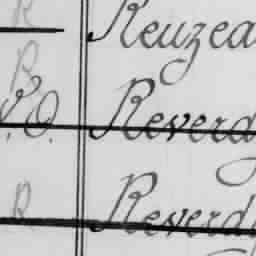 R Reuzea
R
V.O. Reverd
R Reverdy